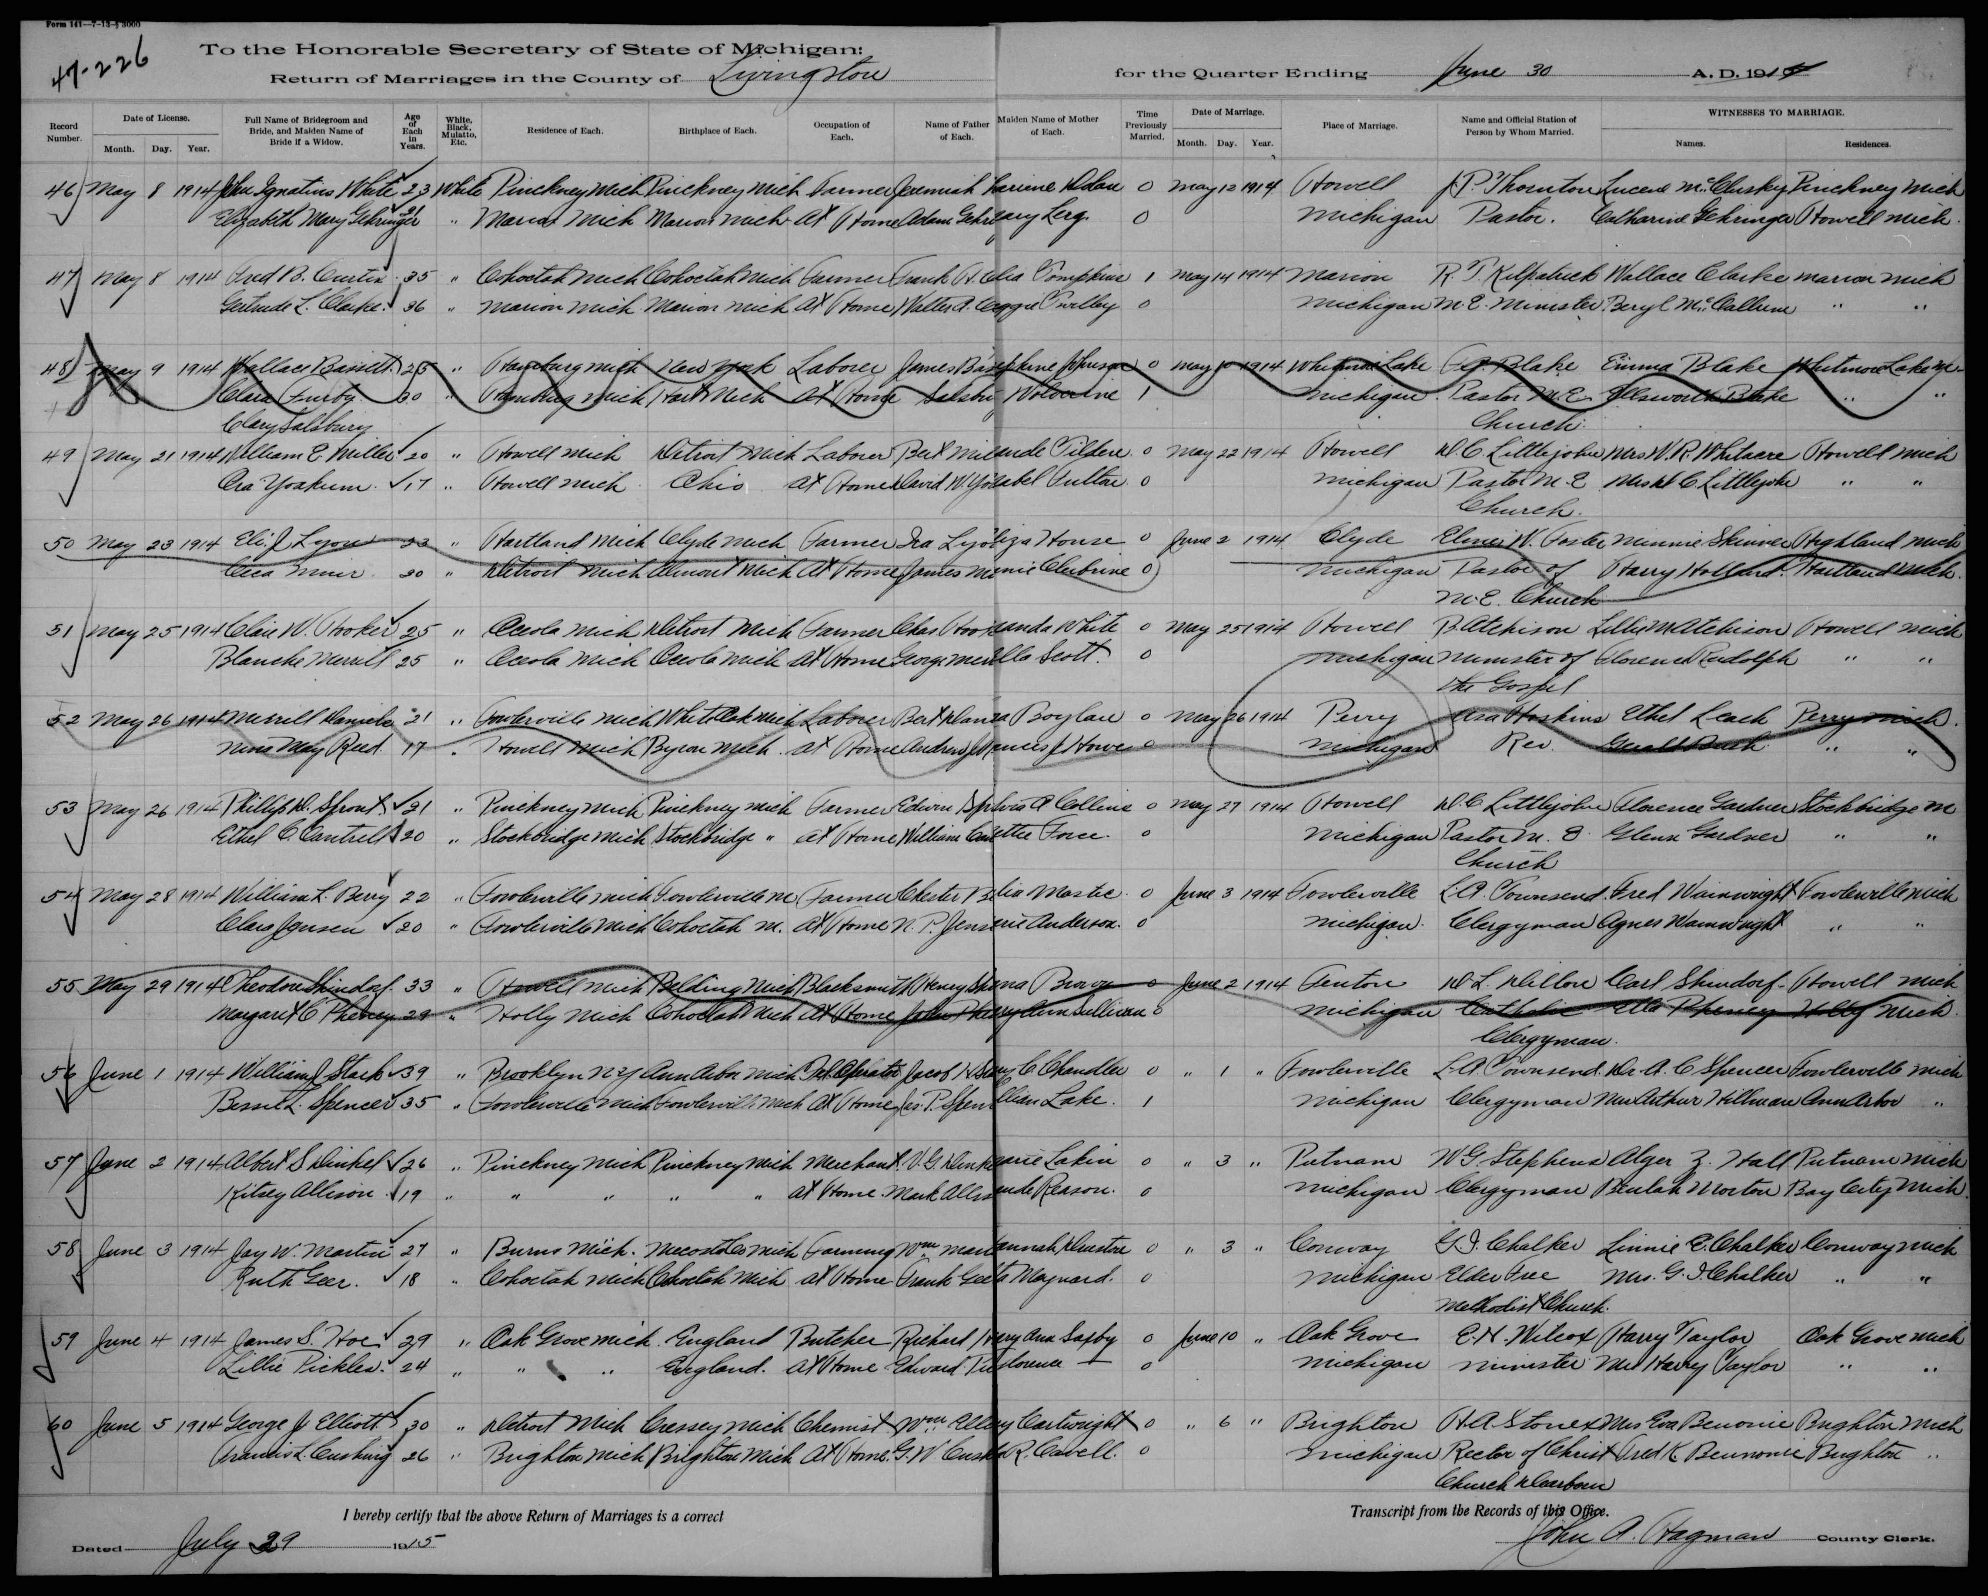 Form 141—7-13-3000
47-226
To the Honorable Secretary of State of Michigan:
Return of Marriages in the County of Livingston for the Quarter Ending June 30 A. D. 1914
Record Number. Date of License. Month. Day. Year. Full Name of Bridegroom and Bride, and Maiden Name of Bride if a Widow. Age of Each in Years. White, Black, Mulatto, Etc. Residence of Each. Birthplace of Each. Occupation of Each. Name of Father of Each. Maiden Name of Mother of Each. Time Previously Married. Date of Marriage. Month. Day. Year. Place of Marriage. Name and Official Station of Person by Whom Married. WITNESSES TO MARRIAGE. Names. Residences.
46 May 8 1914 John Ignatius White 23 White Pinckney Mich Pinckney Mich Farmer Jeremiah Dolan 0 May 12 1914 Howell J. P. Thornton Lucene McClusky Pinckney Mich
Elizabeth Mary Gehringer " Marion Mich Marion Mich At Home Adam Gehr 0 Michigan Pastor. Catharine Gehringer Howell Mich.
47 May 8 1914 Fred B. Curtis 35 " Cohoctah Mich Cohoctah Mich Farmer Frank H. Tompkins 1 May 14 1914 Marion R. T. Kilpatrick Wallace Clarke Marion Mich
Gertrude L. Clarke. 36 " Marion Mich. Marion Mich At Home Walter A. 0 Michigan M. E. Minister. Beryl McCallum " "
48 May 9 1914 Wallace Bassett 25 " Hamburg Mich New York Laborer James Johnson 0 May 10 1914 Whitmore Lake Blake Emma Blake Whitmore Lake
Clara Furby 30 " Hamburg Mich Hart Mich At Home Wolverine 1 Michigan Pastor M. E. Ellsworth Blake " "
Clary Salsbury Church.
49 May 21 1914 William E. Miller 20 " Howell Mich Detroit Mich Laborer Bert Tilden 0 May 22 1914 Howell D. C. Littlejohn Mrs W. R. Whitacre Howell Mich
Ora Yoakum. 17 " Howell Mich. Ohio At Home David W. Fulton. 0 Michigan Pastor M. E. Mrs D. C. Littlejohn " "
Church.
50 May 23 1914 Eli J. Lyon 23 " Hartland Mich Clyde Mich Farmer Ira House 0 June 2 1914 Clyde Elmer W. Foster Minnie Skinner Highland Mich
Muir. 20 " Detroit Mich Almont Mich At Home James 0 Michigan Pastor of Harry Holland. Hartland Mich.
M. E. Church
51 May 25 1914 Clair W. Hooker 25 " Oceola Mich Detroit Mich Farmer Chas White 0 May 25 1914 Howell B. Atchison Lillie M Atchison Howell Mich
Blanche Merrill 25 " Oceola Mich Oceola Mich At Home George Scott. 0 Michigan Minister of Florence Rudolph " "
the Gospel
52 May 26 1914 Merrill Daniels 21 " Fowlerville Mich White Oak Mich Laborer Bert Boylan 0 May 26 1914 Perry Asa Hoskins Ethel Leach Perry Mich.
Nina May Reed. 17 " Howell Mich Byron Mich. At Home Andrew J. Howe 0 Michigan Rev. " "
53 May 26 1914 Phillip D. Sprout 21 " Pinckney Mich Pinckney Mich Farmer Edwin A Collins 0 May 27 1914 Howell D. C. Littlejohn Florence Gardner Stockbridge M
Ethel C. Cantrell 20 " Stockbridge Mich Stockbridge " At Home William Force. 0 Michigan Pastor M. E. Glenn Gardner " "
Church
54 May 28 1914 William L. Berry 22 " Fowlerville Mich Fowlerville M Farmer Chester 0 June 3 1914 Fowlerville L. A. Townsend Fred Wainwright Fowlerville Mich
Clara Jensen 20 " Fowlerville Mich Cohoctah M. At Home N. P. Anderson. 0 Michigan. Clergyman Agnes Wainwright " "
55 May 29 1914 Theodore Shindorf. 33 " Howell Mich Belding Mich Blacksmith Henry Brown 0 June 2 1914 Fenton D. L. Dillon Carl Shindorf Howell Mich
Margaret C. Pheney 29 " Holly Mich Cohoctah Mich At Home John Ann Sullivan 0 Michigan Catholic Ella Pheney Holly Mich.
Clergyman.
56 June 1 1914 William J Stark 39 " Brooklyn N.Y Ann Arbor Mich Tel Operator Jacob C Chandler 0 " 1 " Fowlerville L. A. Townsend Dr. A. C Spencer Fowlerville Mich
Bessie L. Spencer 35 " Fowlerville Mich Fowlerville Mich At Home Lake. 1 Michigan Clergyman Mrs Arthur Hillman Ann Arbor "
57 June 2 1914 Albert S Dinkel 26 " Pinckney Mich Pinckney Mich Merchant. V. G. Lakin 0 " 3 " Putnam W. G. Stephens Alger Z. Hall Putnam Mich
Kitsey Allison. 19 " " " " " At Home. Mark Reason. 0 Michigan Clergyman Beulah Morton Bay City Mich.
58 June 3 1914 Jay W. Martin 27 " Burns Mich. Mecosta Co Mich Farming Wm 0 " 3 " Conway G. I. Chalker Linnie E. Chalker Conway Mich
Ruth Geer. 18 " Cohoctah Mich Cohoctah Mich At Home Frank Maynard. 0 Michigan Elder Free Mrs. G. I. Chalker " "
Methodist Church.
59 June 4 1914 James S. Hoe 29 " Oak Grove Mich. England Butcher Richard Ann Saxby 0 June 10 " Oak Grove E. N. Wilcox Harry Taylor Oak Grove Mich
Lillie Pickles. 24 " " " England. At Home Edward — 0 Michigan Minister Mrs Harry Taylor " "
60 June 5 1914 George J Elliott 30 " Detroit Mich Cressey Mich Chemist Wm Cartwright 0 " 6 " Brighton H. A. Stonex Mrs Eva Benonie Brighton Mich
Francis L. Cushing 26 " Brighton Mich Brighton Mich At Home. G. W R. Cavell. 0 Michigan Rector of Christ Fred K. Brighton "
Church Dearborn
I hereby certify that the above Return of Marriages is a correct Transcript from the Records of this Office.
Dated July 29 1915 John A. Hagman County Clerk.